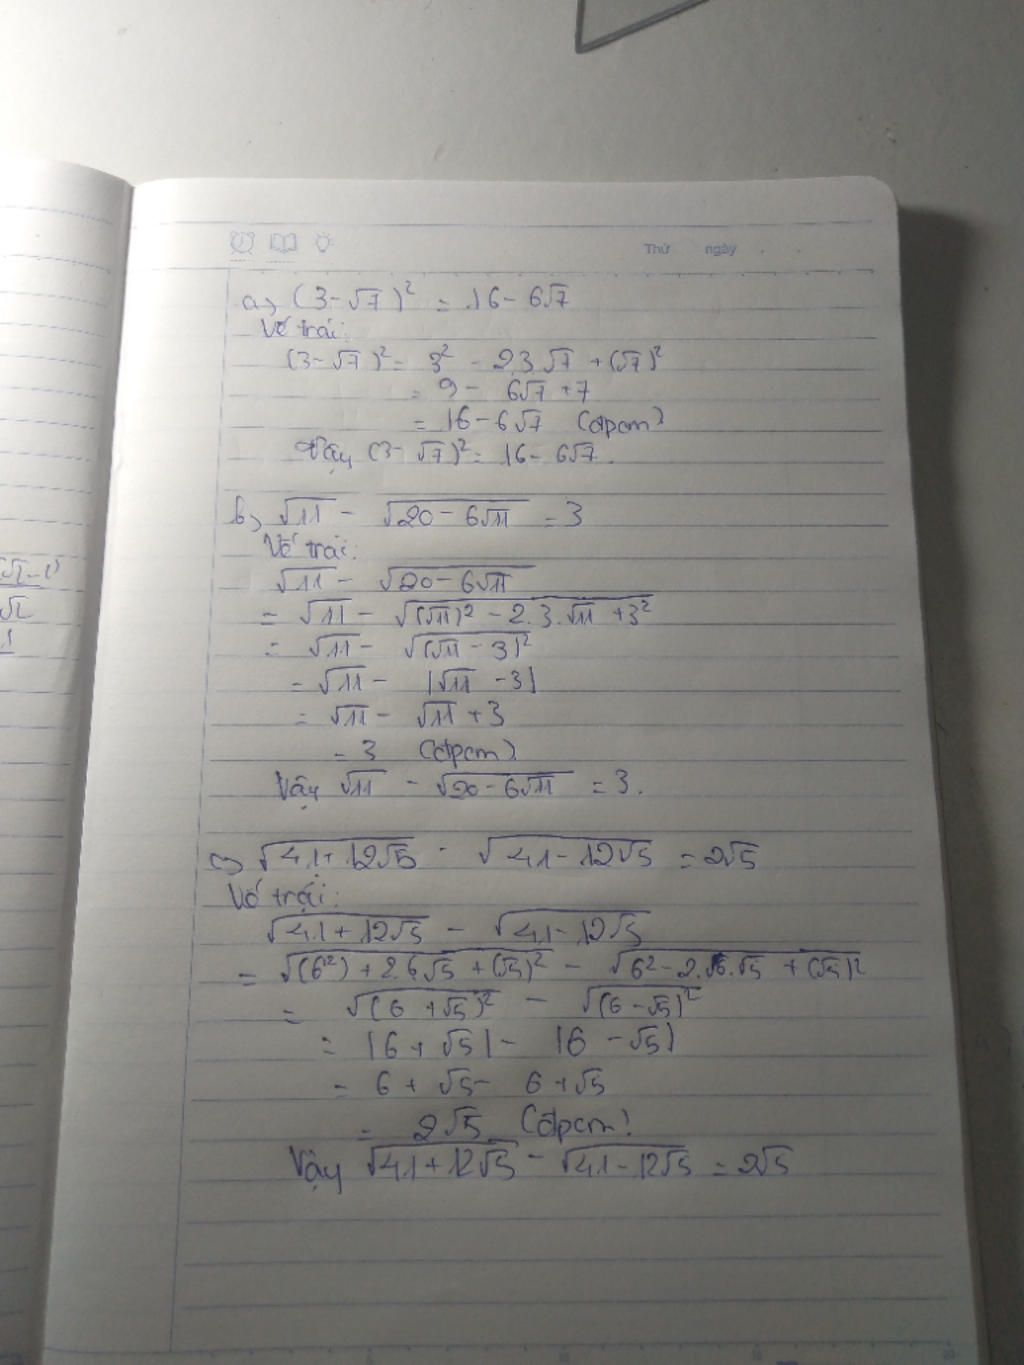 Thứ ngày
a) (3-√7)² = 16 - 6√7
Vế trái:
(3-√7)² = 3² - 2.3√7 + (√7)²
= 9 - 6√7 + 7
= 16 - 6√7 (đpcm)
Vậy (3-√7)² = 16 - 6√7.
b) √11 - √(20 - 6√11) = 3
Vế trái:
√11 - √(20 - 6√11)
= √11 - √((√11)² - 2.3.√11 + 3²)
= √11 - √((√11 - 3)²)
= √11 - |√11 - 3|
= √11 - √11 + 3
= 3 (đpcm)
Vậy √11 - √(20 - 6√11) = 3.
c) √(41 + 12√5) - √(41 - 12√5) = 2√5
Vế trái:
√(41 + 12√5) - √(41 - 12√5)
= √((6²) + 2.6√5 + (√5)²) - √(6² - 2.6.√5 + (√5)²)
= √((6 + √5)²) - √((6 - √5)²)
= |6 + √5| - |6 - √5|
= 6 + √5 - 6 + √5
= 2√5 (đpcm)
Vậy √(41 + 12√5) - √(41 - 12√5) = 2√5